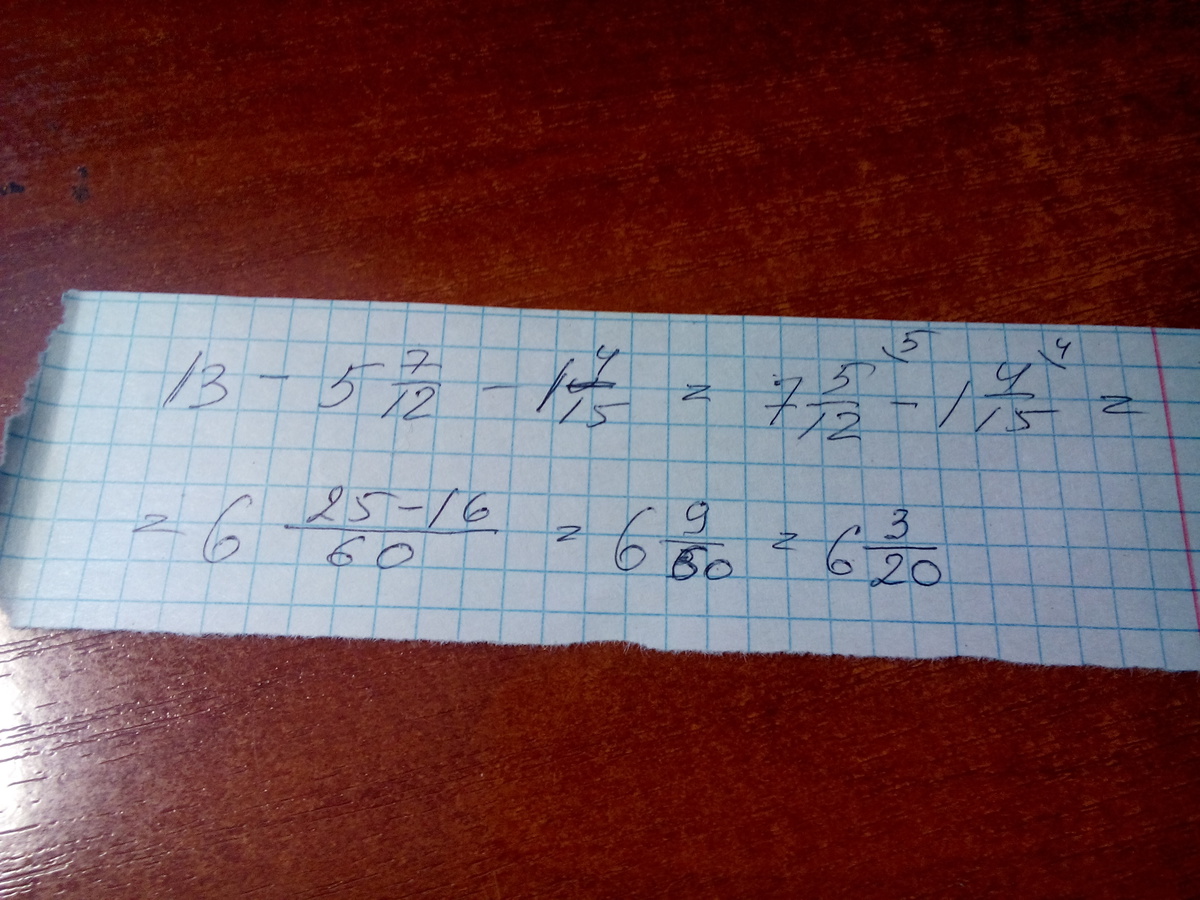 13 - 5 7/12 - 1 4/15 = 7 5/12 ⁵ - 1 4/15 ⁴ =
= 6 25-16/60 = 6 9/60 = 6 3/20